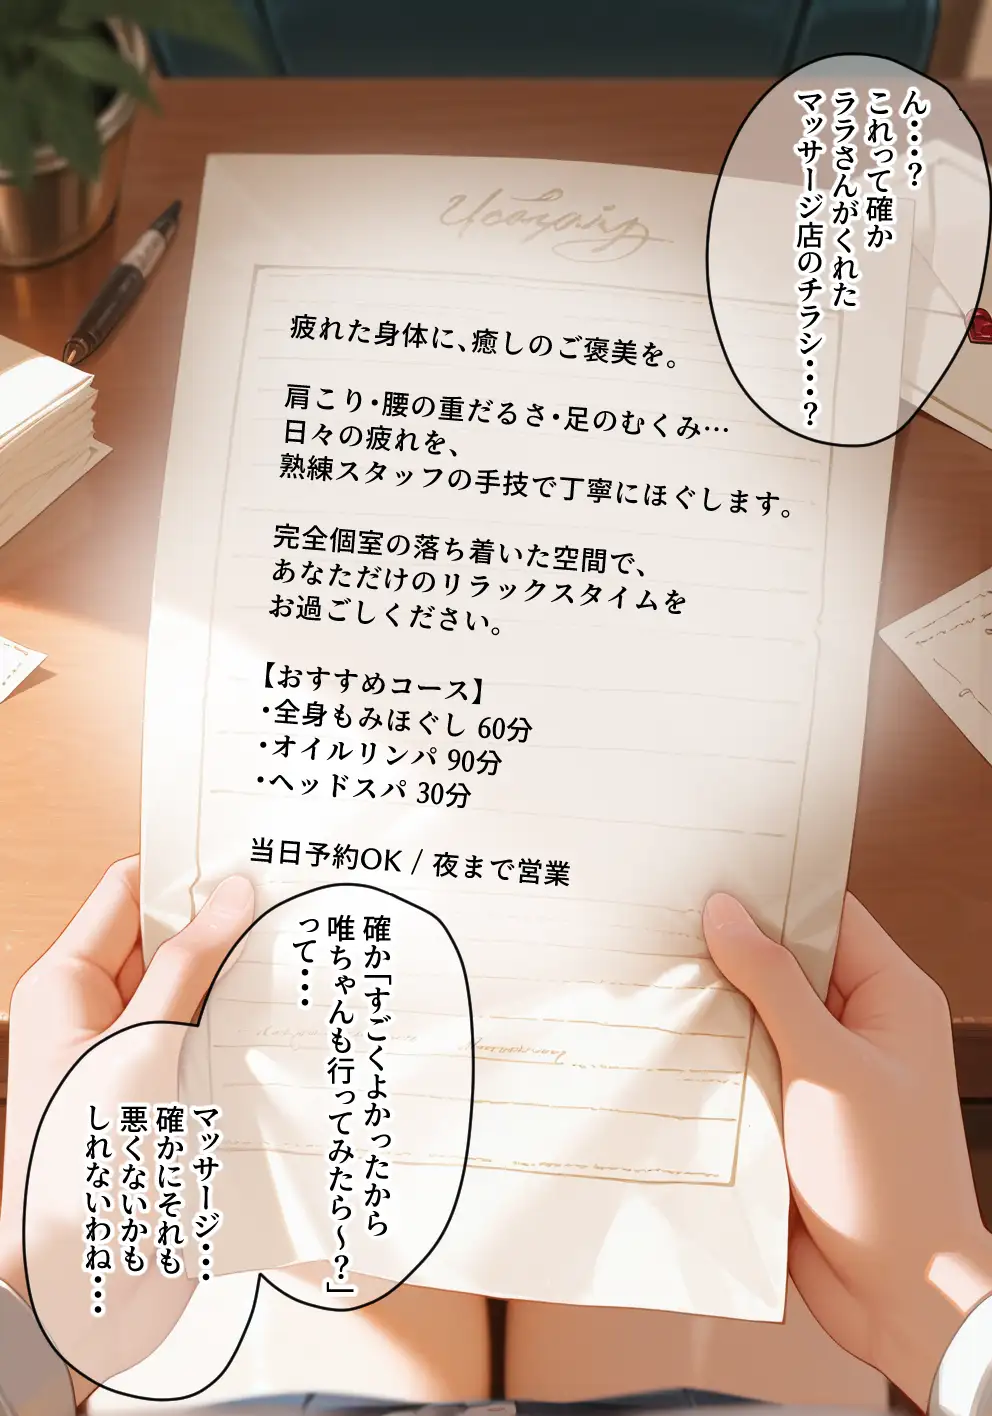 ん・・・？
これって確か
ララさんがくれた
マッサージ店のチラシ・・・？
疲れた身体に、癒しのご褒美を。
肩こり・腰の重だるさ・足のむくみ…
日々の疲れを、
熟練スタッフの手技で丁寧にほぐします。
完全個室の落ち着いた空間で、
あなただけのリラックスタイムを
お過ごしください。
【おすすめコース】
・全身もみほぐし 60分
・オイルリンパ 90分
・ヘッドスパ 30分
当日予約OK / 夜まで営業
確か「すごくよかったから
唯ちゃんも行ってみたら～？」
って・・・
マッサージ・・・
確かにそれも
悪くないかも
しれないわね・・・